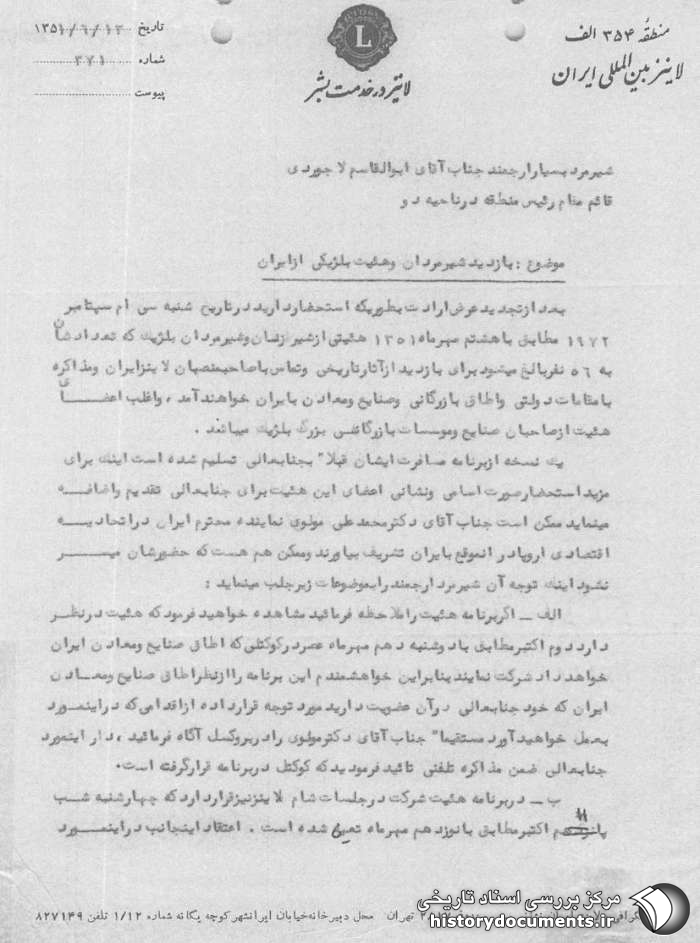 منطقهٔ ۳۵۴ الف
لاینز بین المللی ایران
L
لاینز در خدمت بشر
تاریخ ۱۳۵۱/۶/۱۳
شماره ۳۲۱
پیوست
شیرمرد بسیار ارجمند جناب آقای ابوالقاسم لاجوردی
قائم مقام رئیس منطقه در ناحیه دو
موضوع : بازدید شیرمردان وهئیت بلژیکی ازایران
بعد ازتجدید عرض ارادت بطوریکه استحضاردارید درتاریخ شنبه سی ام سپتامبر
۱۹۷۲ مطابق باهشتم مهرماه ۱۳۵۱ هئیتی ازشیرزنان وشیرمردان بلژیك که تعدادشان
به ۵۶ نفربالغ میشود برای بازدید ازآثارتاریخی وتماس باصاحبمنصبان لاینزایران ومذاکره
بامقامات دولتی واطاق بازرگانی وصنایع ومعادن بایران خواهند آمد ، واغلب اعضای
هئیت ازصاحبان صنایع وموسسات بازرگانی بزرگ بلژیك میباشند .
یك نسخه ازبرنامه مسافرت ایشان قبلا" بجنابعالی تسلیم شده است اینك برای
مزید استحضارصورت اسامی ونشانی اعضای این هئیت برای جنابعالی تقدیم واضافه
مینماید ممکن است جناب آقای دکترمحمدعلی مولوی نماینده محترم ایران دراتحادیه
اقتصادی اروپا در آنموقع بایران تشریف بیاورند وممکن هم هست که حضورشان میسر
نشود اینك توجه آن شیرمرد ارجمند رابموضوعات زیرجلب مینماید :
الف ــ اگربرنامه هئیت راملاحظه فرمائید مشاهده خواهید فرمود که هئیت درنظر
دارد دوم اکتبرمطابق بادوشنبه دهم مهرماه عصردرکوکتلی که اطاق صنایع ومعادن ایران
خواهد داد شرکت نمایند بنابراین خواهشمندم این برنامه راازنظراطاق صنایع ومعادن
ایران که خود جنابعالی درآن عضویت دارید مورد توجه قرارداده ازاقدامی که دراینمورد
بعمل خواهید آورد مستقیما" جناب آقای دکترمولوی رادربروکسل آگاه فرمائید ، دراینمورد
جنابعالی ضمن مذاکره تلفنی تائید فرمودید که کوکتل دربرنامه قرارگرفته است.
ب ــ دربرنامه هئیت شرکت درجلسات شام لاینزنیزقراردارد که چهارشنبه شب
۱۱ اکتبرمطابق بانوزدهم مهرماه تعیین شده است . اعتقاد اینجانب دراینمورد
تهران محل دبیرخانه خیابان ایرانشهر کوچه یگانه شماره ۱/۱۲ تلفن ۸۲۷۱۴۹
مرکز بررسی اسناد تاریخی
historydocuments.ir